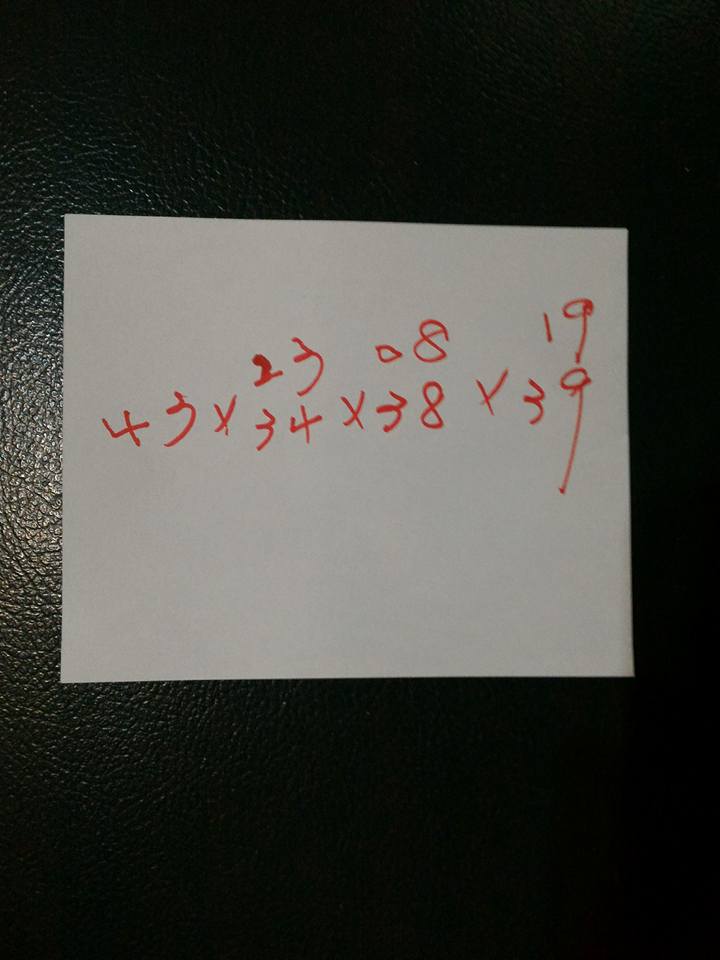 23 08 19
43 x 34 x 38 x 39